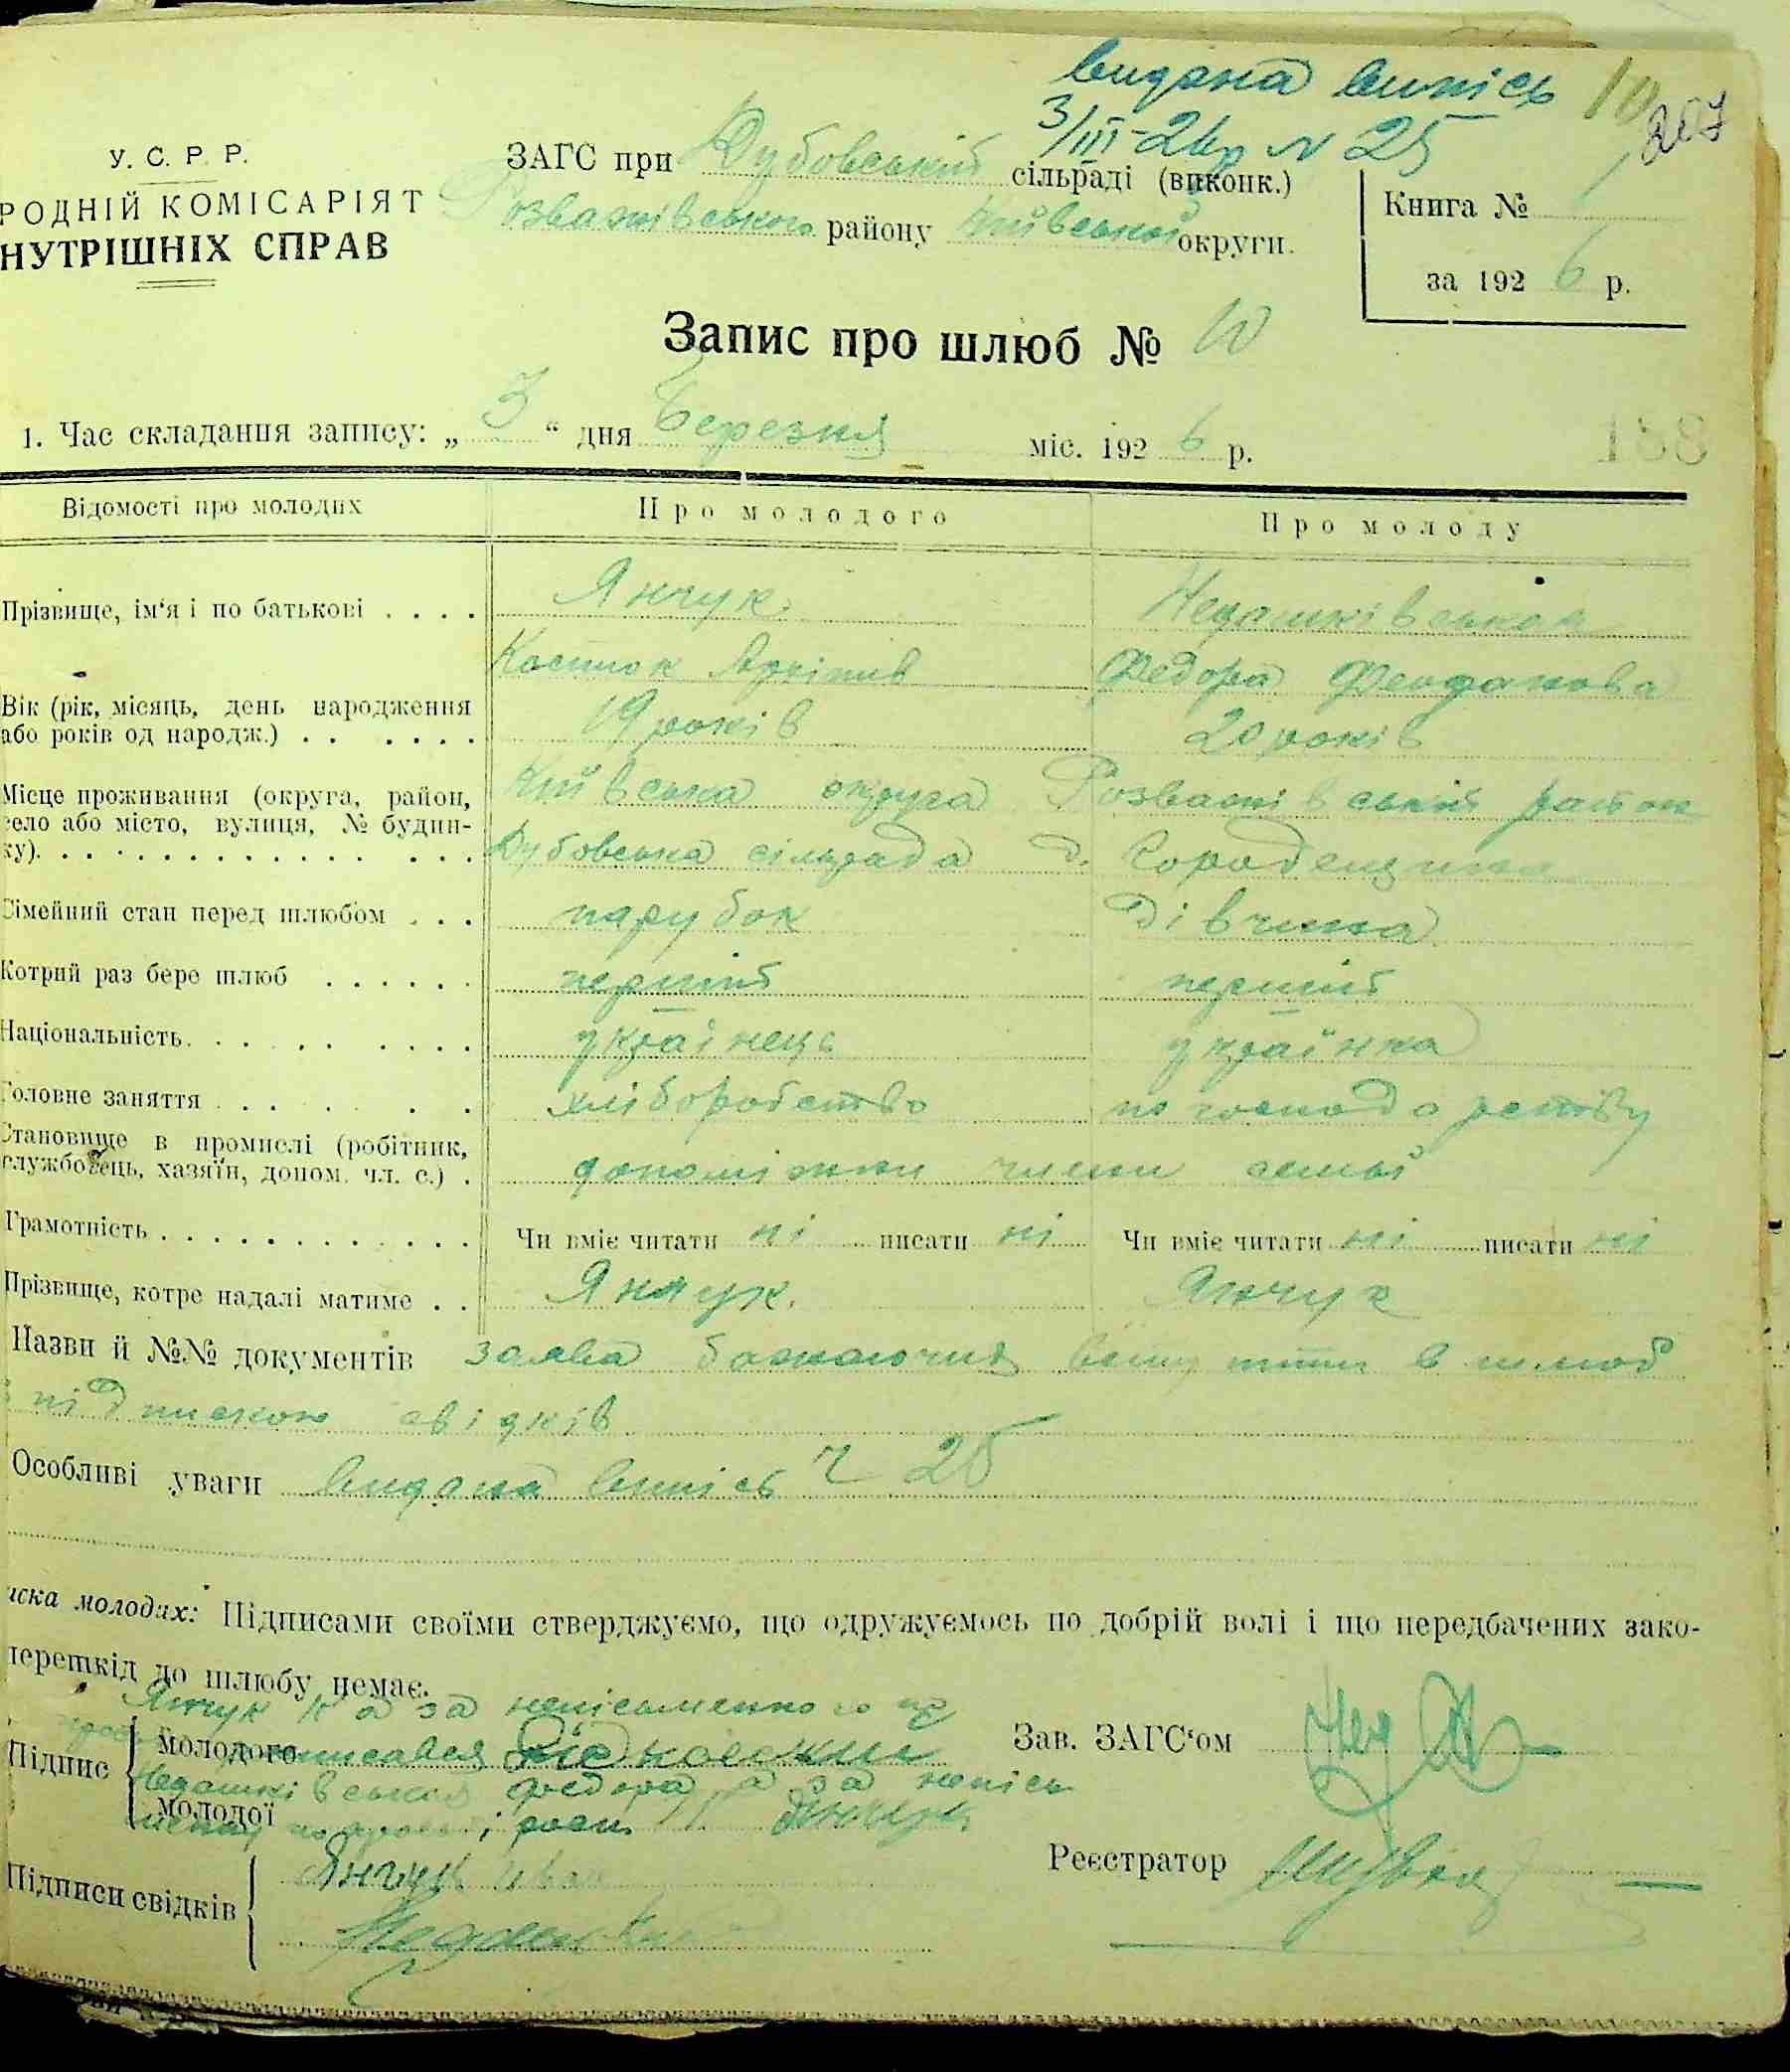 видана випісь 10
3/III-26р N 25 207
У. С. Р. Р.
ЗАГС при Дубовській сільраді (виконк.)
РОДНІЙ КОМІСАРІЯТ
НУТРІШНІХ СПРАВ
Розважівського району Київської округи.
Книга № 1
за 1926 р.
Запис про шлюб № 10
1. Час складання запису: „ 3 “ дня Березня міс. 1926 р.
138
Відомості про молодих Про молодого Про молоду
Прізвище, ім‘я і по батькові . . . . Янчук Недашківська
Костюк Архипів Федора Феофанова
Вік (рік, місяць, день народження
або років од народж.) . . . . . . 19 років 20 років
Місце проживання (округа, район, Київська округа Розважівський район
село або місто, вулиця, № будин-
ку). Дубовська сільрада д. Городещина
Сімейний стан перед шлюбом . . . парубок дівчина
Котрий раз бере шлюб . . . . . . перший перший
Національність. українець українка
Головне заняття хліборобство по господарству
Становище в промислі (робітник,
службовець, хазяїн, допом. чл. с.) . допоміжни члени семьї
Грамотність Чи вміє читати ні писати ні Чи вміє читати ні писати ні
Прізвище, котре надалі матиме . . Янчук. Янчук
Назви й №№ документів заява бажаючих вступити в шлюб
з підпискою свідків
Особливі уваги видана випісь Ч 25
иска молодих: Підписами своїми стверджуємо, що одружуємось по добрій волі і що передбачених зако-
перешкід до шлюбу немає.
Янчук К а за неписьменно го
Підпис молодого
Недашківська Федора а за непісь
молодої Янчук
Зав. ЗАГС‘ом
Підписи свідків Янчук Іван
Реєстратор